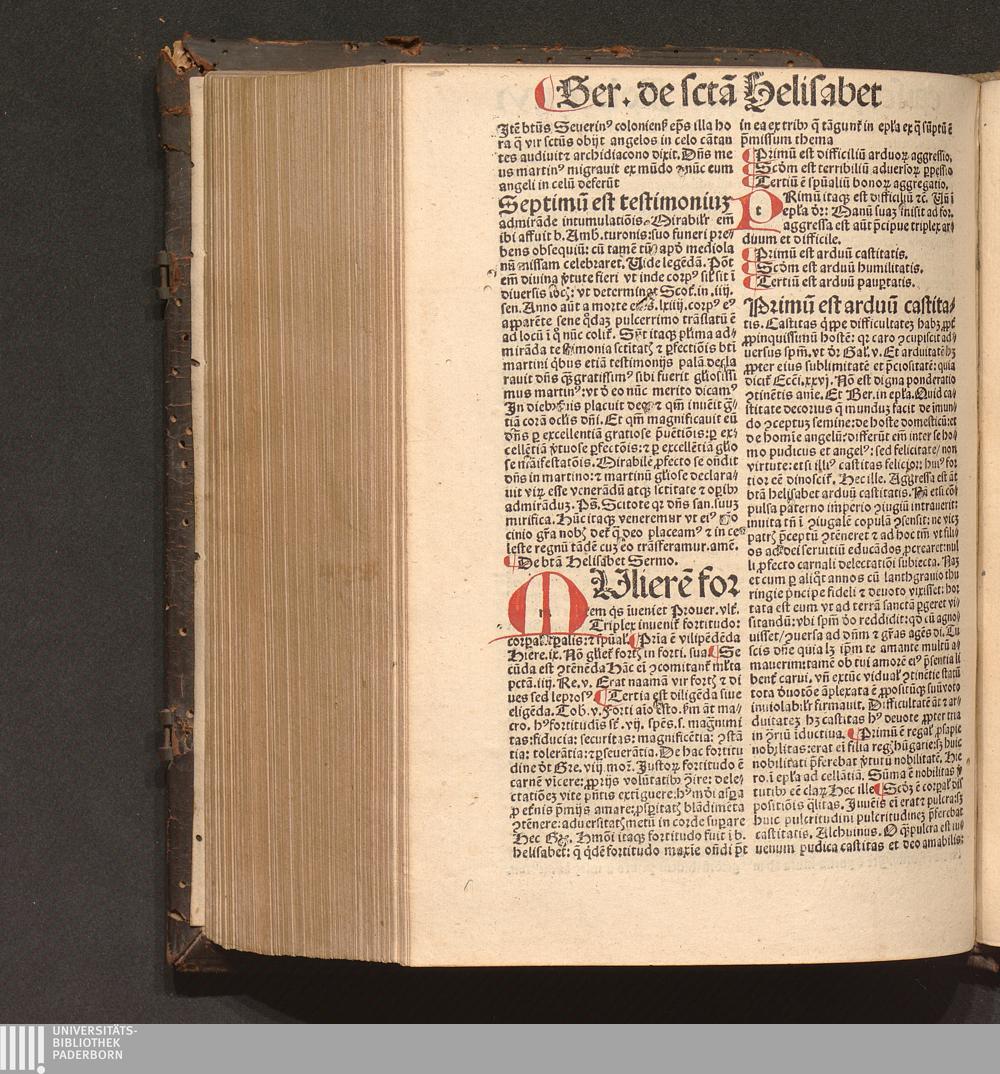 ¶Ser. de sctā Helisabet
Itē btūs Seuerinꝰ coloniensꝭ ep̄s illa ho
ra q̄ vir sctūs obijt angelos in celo cātan
tes audiuit ⁊ archidiacono dixit. Dn̄s me
us martinꝰ migrauit ex mūdo ⁊ nūc eum
angeli in celū deferūt
Septimū est testimoniuꝫ
admirāde intumulatiōis. Mirabilr̄ em̄
ibi affuit b. Amb. turonis: suo funeri pre⸗
bens obsequiū: cū tamē tūc apd̄ mediola
nū missam celebraret. Uide legēdā. Pōt
em̄ diuina v̓tute fieri vt inde corpꝰ sit ī
diuersis locꝭ: vt determinat Scot. in .iiij.
sen. Anno aūt a morte eiꝰ. lxiiij. corpꝰ eꝰ
apparēte sene q̇daꝫ pulcerrimo trāslatū ē
ad locū ī q̇ nūc colit̄. Sūt itaqꝫ pl̓ima ad⸗
mirāda testimonia sctitatꝭ ⁊ ꝑfectiōis bt̄i
martini q̇bus etiā testimonijs palā decla
rauit dn̄s qꝫ gratissimꝰ sibi fuerit gl̓iosissi
mus martinꝰ: vt d̓ eo nūc merito dicamꝰ
In diebꝰ suis placuit deo: ⁊ qm̄ inuēit gr̄⸗
tiā corā oclis dn̄i. Et qm̄ magnificauit eū
dn̄s ꝑ excellentiā gratiose p̄uētiōis: ꝑ ex⸗
cellētiā v̓tuose ꝑfectōis: ⁊ ꝑ excellētiā gl̓io
se māifestatōis. Mirabilē ꝓfecto se on̄dit
dn̄s in martino: ⁊ martinū gl̓iose declara⸗
uit virꝫ esse venerādū atqꝫ sctitate ⁊ oꝑibꝰ
admirāduꝫ. Ps̄. Scitote qꝛ dn̄s san. suuꝫ
mirifica. Hūc itaqꝫ veneremur vt eiꝰ
cinio gr̄a nobꝭ det̄ q̇ deo placeamꝰ ⁊ in ce⸗
leste regnū tādē cuꝫ eo trāsferamur. amē.
¶De btā Helisabet Sermo.
MUlierē for
m
tem q̇s īueniet Prouer. vlt̄.
Triplex inuenit̄ fortitudo:
corꝑalꝭ ꝑalis: ⁊ sp̄ual̓. ¶Pria ē vilipēdēda
Hiere. ix. Nō gl̓iet̄ fortꝭ in forti. sua ¶Se
cūda est ꝯtēnēda Hāc ei ꝯcomitant̄ ml̓ta
pctā. iiij. Re. v. Erat naamā vir fortꝭ ⁊ di
ues sed leprosꝰ ¶Tertia est diligēda siue
eligēda. Tob. v. Forti aīo esto. Fm̄ āt ma⸗
cro. hꝰ fortitudīs st̄. vij. spēs. s. magnimi
tas: fiducia: securitas: magnificētia: ꝯstā
tia: tolerātia: ⁊ ꝑseuerātia. De hac fortitu
dine d̓t Gre. viij mor̄. Iustoꝝ fortitudo ē
carnē vicere: ꝓprijs volūtatibꝰ ꝯire: dele⸗
ctatiōeꝫ vite pn̄tis extīguere: hꝰ mō̄i aspa
ꝓ et̄nis p̄mijs amare: ꝓsꝑitatꝭ blādimēta
ꝯtēnere: aduersitatꝭ metū in corde suꝑare
Hec Gre. Hmōi itaqꝫ fortitudo fuit ī b.
helisabet: q̄ q̇dē fortitudo maxīe on̄di p̄t
in ea ex tribꝰ q̄ tāgunt̄ in epl̓a ex q̄ sūptū ē
p̄missum thema
¶Primū est difficiliū arduoꝝ aggressio,
¶Scd̄m est terribiliū aduersoꝝ ꝑpessio
¶Tertiū ē sp̄ualiū bonoꝝ aggregatio,
PRimū itaqꝫ est difficiliū ⁊c. Uñ ī
t epl̓a dr̄: Manū suaꝫ misit ad for.
aggressa est aūt p̄cipue triplex ar⸗
duum et difficile.
¶Primū est arduū castitatis.
¶Scd̄m est arduū humilitatis.
¶Tertiū est arduū pauꝑtatis.
Primū est arduū castita⸗
tis. Castitas q̇ppe difficultateꝫ habꝫ ꝓpt̄
ꝓpinquissimū hostē: qꝛ caro ꝯcupiscit ad⸗
uersus spm̄. vt dr̄ Gal̓. v. Et arduitatē hꝫ
ꝓpter eius sublimitatē et p̄ciositatē: quia
dicit̄ Ecci. xxvj. Nō est digna ponderatio
ꝯtinētis aīe. Et Ber. in epl̓a. Quid ca⸗
stitate decorius q̄ munduꝫ facit de īmun⸗
do ꝯceptuꝫ semine: de hoste domesticū: et
de homīe angelū: differūt em̄ inter se ho⸗
mo pudicus et angelꝰ: sed felicitate / non
virtute: etsi illiꝰ castitas felicior: huiꝰ for
tior eē dinoscit̄. Hec ille. Aggressa est āt
btā helisabet arduū castitatis. Nā etsi cō⸗
pulsa paterno imperio ꝯiugiū intrauerit:
inuita tn̄ ī ꝯiugalē copulā ꝯsensit: ne vicꝫ
patrꝭ p̄ceptū ꝯtēneret ⁊ ad hoc tm̄ vt fili⸗
os ad dei seruitiū educādos ꝓcrearet: nul
li ꝓfecto carnali delectatiōi subiecta. Naꝫ
et cum ꝑ aliq̇t annos cū lanthgrauio thu
ringie p̄ncipe fideli ⁊ deuoto vixisset: hor
tata est eum vt ad terrā sanctā ꝑgeret vi⸗
sitandū: vbi spm̄ d̓o reddidit: qd̓ cū agno⸗
uisset / ꝯuersa ad dn̄m ⁊ gr̄as agēs di. Tu
scis dn̄e quia lꝫ ip̄m te amante multū a⸗
mauerim: tamē ob tui amorē eiꝰ p̄sentia li
bent̄ carui. vñ extūc vidual̓ ꝯtinētie statū
tota d̓uotōe āplexata ē ꝓpositūqꝫ suū voto
inuiolabl̓r firmauit. Difficultatē āt ⁊ ar⸗
duitateꝫ hꝫ castitas hꝰ deuote ꝓpter tria
in ꝯriū īductiua. ¶Primū ē regal̓ ꝓsapie
nobꝭlitas: erat ei filia regꝭ hūgarie: sꝫ huic
nobilitati p̄ferebat v̓tutū nobilitatē. Hie
ro. ī epl̓a ad cellātiā. Sūma ē nobilitas v̓
tutibꝰ eē clarꝫ Hec ille ¶Scd̄ꝫ ē corꝑal̓ dis
positiōis q̄litas. Iuuēis ei erat ⁊ pulcra: sꝫ
huic pulcritudini pulcritudineꝫ p̄ferebat
castitatis. Alchuinus. O q̄ꝫ pulcra est iu⸗
uenum pudica castitas et deo amabilis:
UNIVERSITÄTS-
BIBLIOTHEK
PADERBORN